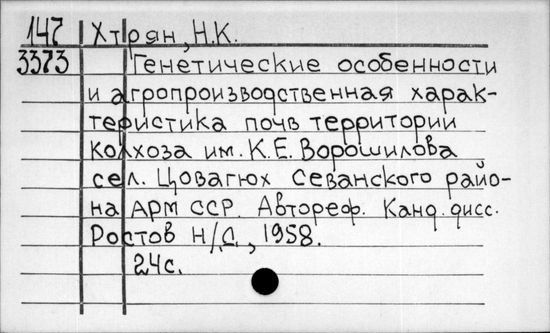 147 Хтрян, Н.К.
3373 Генетические особенности
и агропроизводственная харак-
теристика почв территории
колхоза им. К.Е. Ворошилова
сел. Цовагюх Севанского райо-
на Арм ССР. Автореф. Канд. дисс.
Ростов н/Д., 1958.
24с.